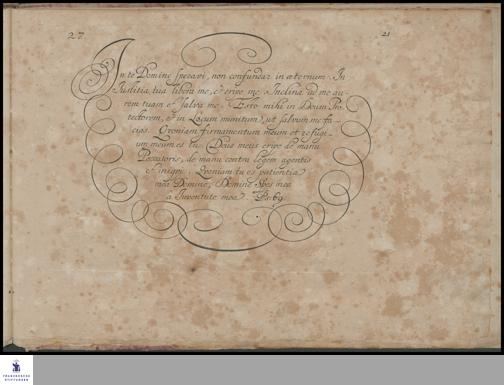 27.
21
In te Domine speravi, non confundar in æternum. In
Justitia tua libera me, & eripe me. Inclina ad me au-
rem tuam & salva me. Esto mihi in Deum Pro-
tectorem, & in Locum munitum, ut salvum me fa-
cias. Qvoniam firmamentum meum et refugi-
um meum es tu. Deus meus eripe de manu
Peccatoris, de manu contra legem agentis
& iniqvi. Qvoniam tu es patientia
mea Domine, Domine Spes mea
a Juventute mea. Ps: 69.
FRANCKESCHE
STIFTUNGEN